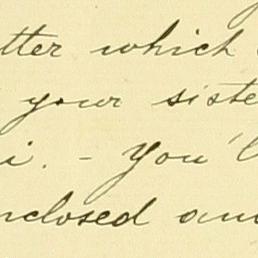 tter which
your siste
i. - You'l
nclosed an